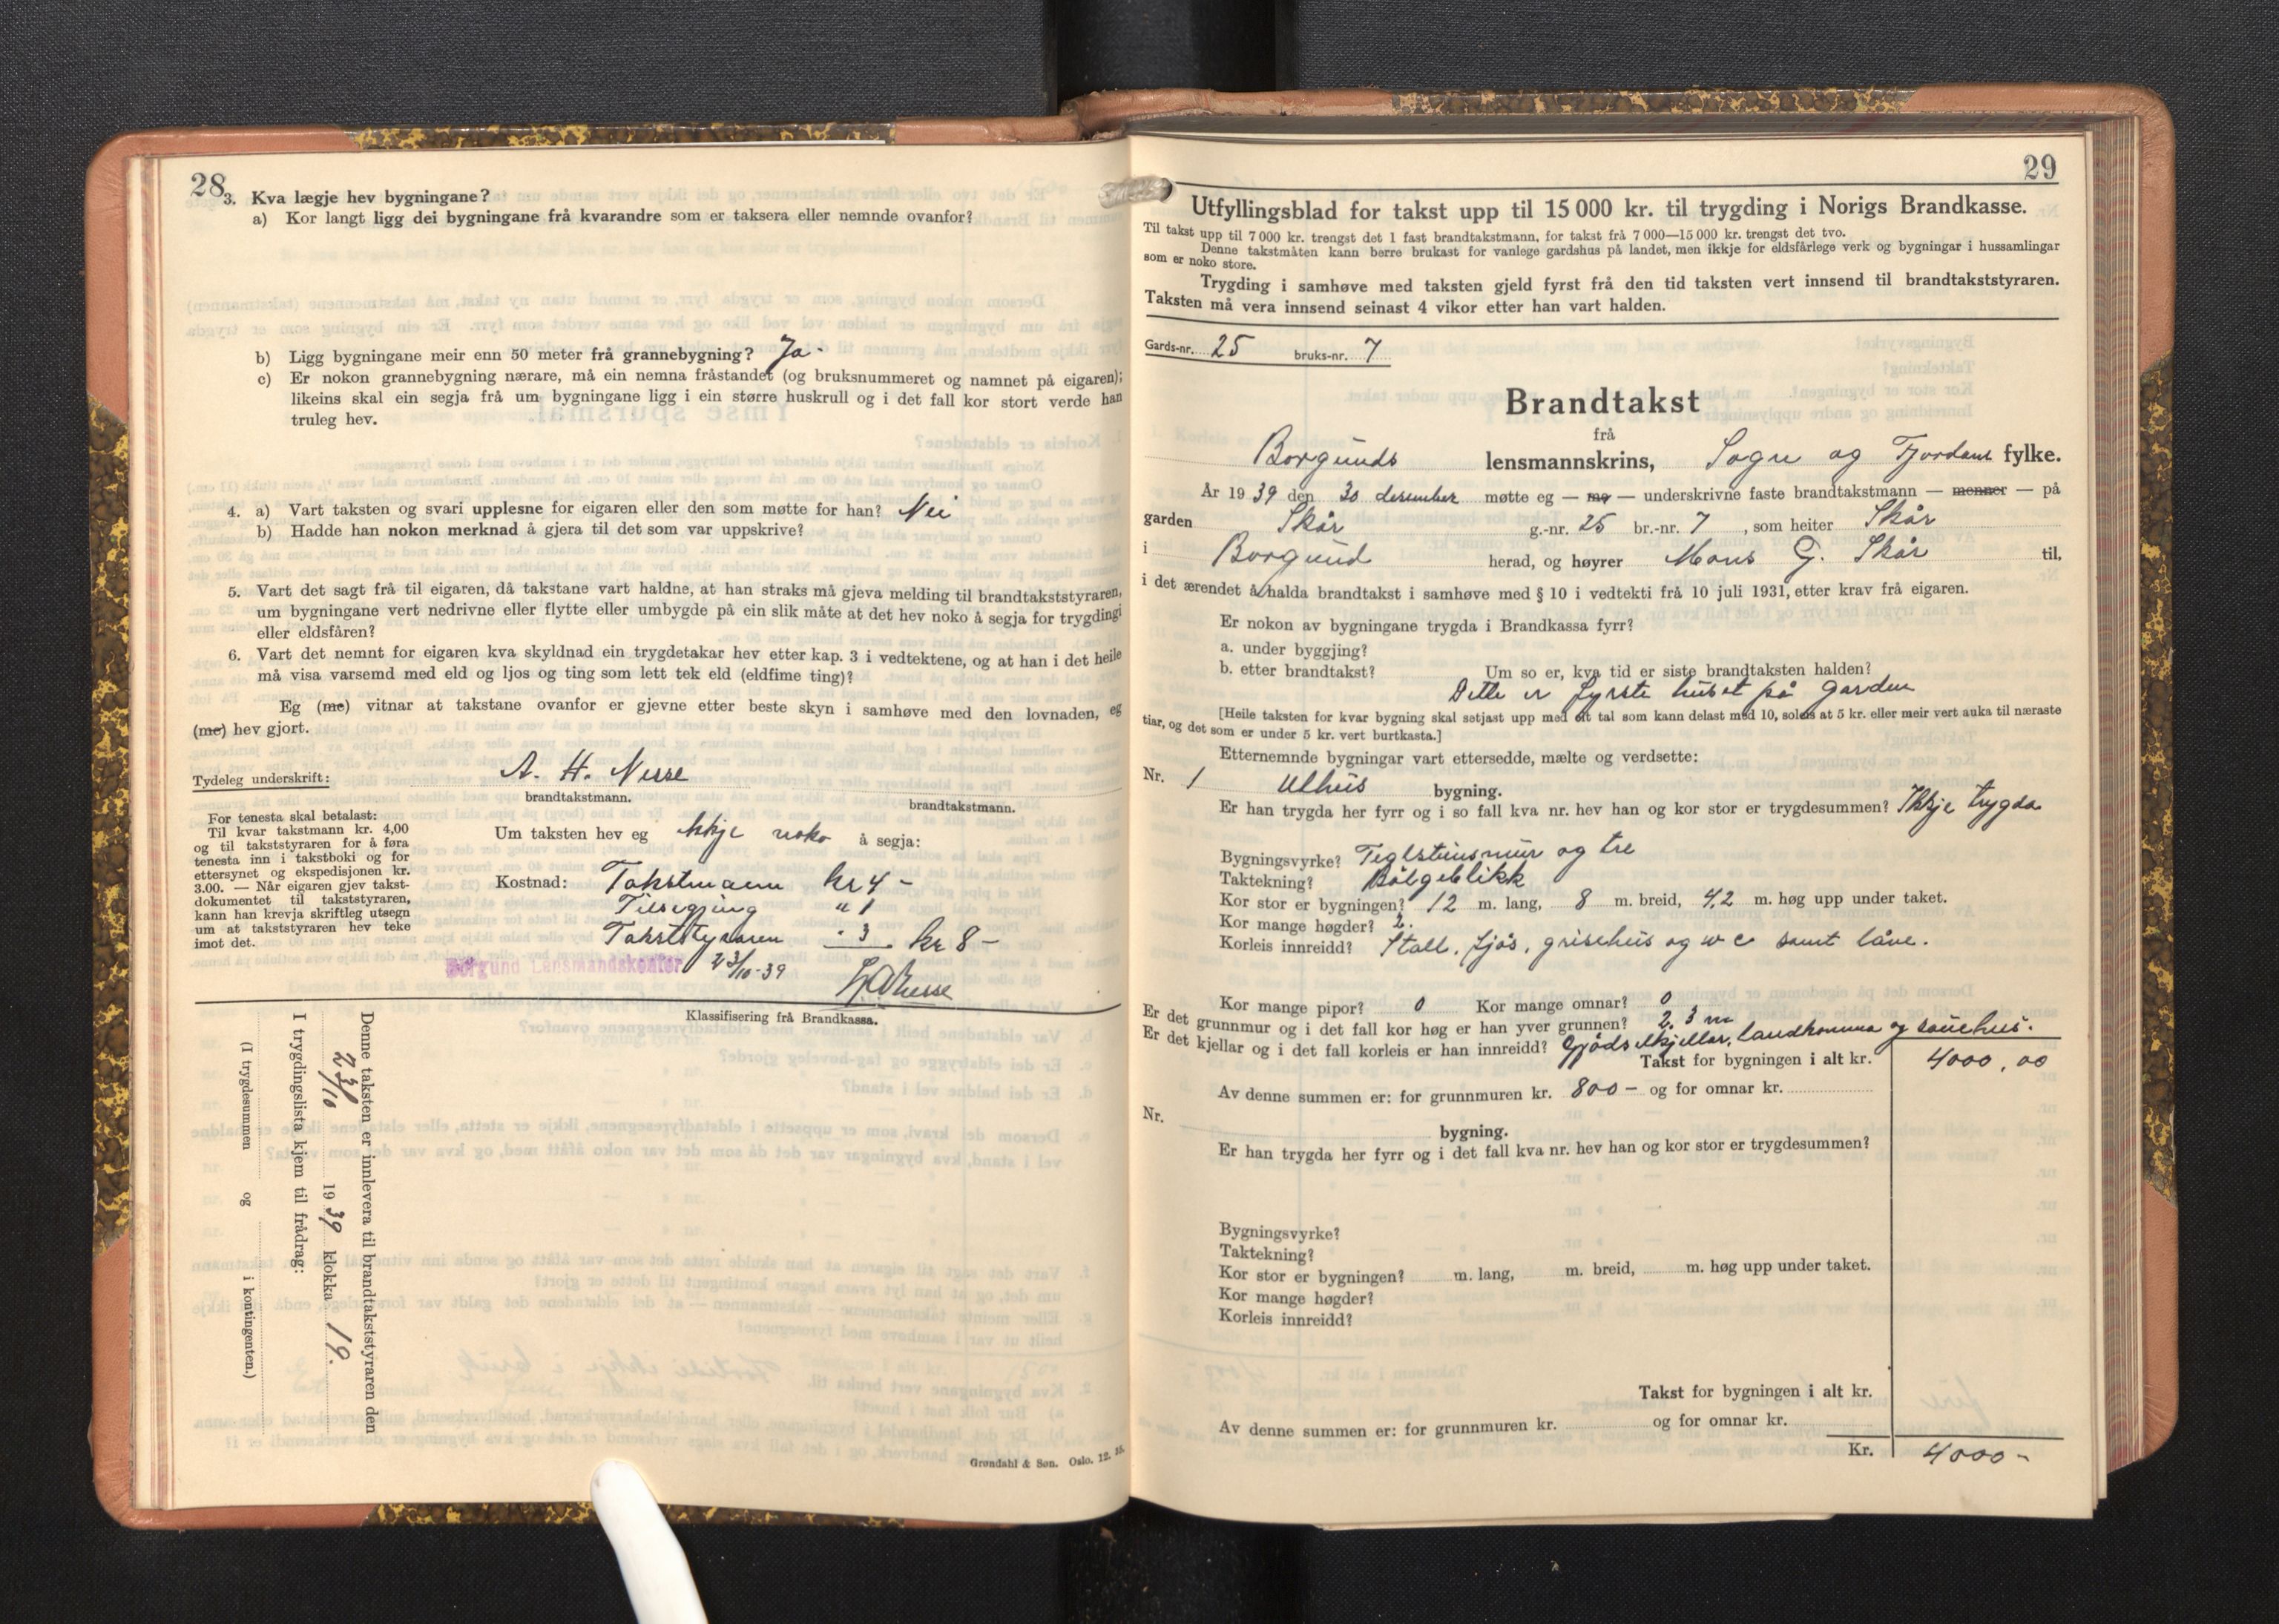 28
3. Kva lægje hev bygningane?
a) Kor langt ligg dei bygningane frå kvarandre som er taksera eller nemnde ovanfor?
b) Ligg bygningane meir enn 50 meter frå grannebygning? Ja.
c) Er nokon grannebygning nærare, må ein nemna fråstandet (og bruksnummeret og namnet på eigaren);
likeins skal ein segja frå um bygningane ligg i ein større huskrull og i det fall kor stort verde han
truleg hev.
4. a) Vart taksten og svari upplesne for eigaren eller den som møtte for han? Nei
b) Hadde han nokon merknad å gjera til det som var uppskrive?
5. Vart det sagt frå til eigaren, då takstane vart haldne, at han straks må gjeva melding til brandtakststyraren,
um bygningane vert nedrivne eller flytte eller umbygde på ein slik måte at det hev noko å segja for trygdingi
eller eldsfåren?
6. Vart det nemnt for eigaren kva skyldnad ein trygdetakar hev etter kap. 3 i vedtektene, og at han i det heile
må visa varsemd med eld og ljos og ting som lett tek eld (eldfime ting)?
Eg (me) vitnar at takstane ovanfor er gjevne etter beste skyn i samhøve med den lovnaden, eg
(me) hev gjort.
Tydeleg underskrift: A. H. Nesse
brandtakstmann. brandtakstmann.
For tenesta skal betalast:
Til kvar takstmann kr. 4,00
og til takststyraren for å føra
tenesta inn i takstboki og for
ettersynet og ekspedisjonen kr.
3.00. — Når eigaren gjev takst-
dokumentet til takststyraren,
kann han krevja skriftleg utsegn
um at takststyraren hev teke
imot det.
Um taksten hev eg ikkje noko å segja:
Kostnad: Takstmann kr 4 -
Tilsegjing " 1
Takststyraren - 3 kr 8 -
Borgund Lensmandskontor 23/10-39
Nesse
Klassifisering frå Brandkassa.
Denne taksten er innlevera til brandtakststyraren den
23/10 1939 klokka 19.
I trygdingslista kjem til frådrag:
(I trygdesummen og i kontingenten.)
Grøndahl & Søn. Oslo. 12. 35.
29
Utfyllingsblad for takst upp til 15 000 kr. til trygding i Norigs Brandkasse.
Til takst upp til 7 000 kr. trengst det 1 fast brandtakstmann, for takst frå 7 000—15 000 kr. trengst det tvo.
Denne takstmåten kann berre brukast for vanlege gardshus på landet, men ikkje for eldsfårlege verk og bygningar i hussamlingar
som er noko store.
Trygding i samhøve med taksten gjeld fyrst frå den tid taksten vert innsend til brandtakststyraren.
Taksten må vera innsend seinast 4 vikor etter han vart halden.
Gards-nr. 25 bruks-nr. 7
Brandtakst
frå
Borgunds lensmannskrins, Sogn og Fjordane fylke.
År 1939 den 30 desember møtte eg — me — underskrivne faste brandtakstmann — menner — på
garden Skår g.-nr. 25 br.-nr. 7, som heiter Skår
i Borgund herad, og høyrer Mons G. Skår til,
i det ærendet å halda brandtakst i samhøve med § 10 i vedtekti frå 10 juli 1931, etter krav frå eigaren.
Er nokon av bygningane trygda i Brandkassa fyrr?
a. under byggjing?
b. etter brandtakst? Um so er, kva tid er siste brandtaksten halden?
Dette er fyrste huset på garden
[Heile taksten for kvar bygning skal setjast upp med eit tal som kann delast med 10, soleis at 5 kr. eller meir vert auka til næraste
tiar, og det som er under 5 kr. vert burtkasta.]
Etternemnde bygningar vart ettersedde, mælte og verdsette:
Nr. 1 Uthus bygning.
Er han trygda her fyrr og i so fall kva nr. hev han og kor stor er trygdesummen? Ikkje trygda
Bygningsvyrke? Teglsteinsmur og tre
Taktekning? Bölgeblikk
Kor stor er bygningen? 12 m. lang, 8 m. breid, 4,2 m. høg upp under taket.
Kor mange høgder? 2.
Korleis innreidd? Stall, fjøs, grisehus og wc samt låve.
Kor mange pipor? 0 Kor mange omnar? 0
Er det grunnmur og i det fall kor høg er han yver grunnen? 2,3 m
Er det kjellar og i det fall korleis er han innreidd? Gjödselkjellar, landkumma og sauehus.
Takst for bygningen i alt kr. 4000,00
Av denne summen er: for grunnmuren kr. 800 - og for omnar kr.
Nr. bygning.
Er han trygda her fyrr og i det fall kva nr. hev han og kor stor er trygdesummen?
Bygningsvyrke?
Taktekning?
Kor stor er bygningen? m. lang, m. breid, m. høg upp under taket.
Kor mange høgder?
Korleis innreidd?
Takst for bygningen i alt kr.
Av denne summen er: for grunnmuren kr. og for omnar kr.
Kr. 4000 -